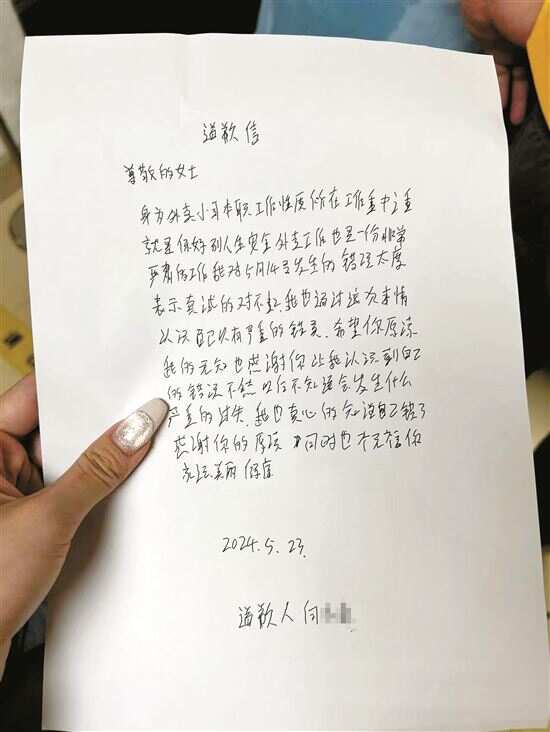 道歉信
尊敬的女士
身为外卖小哥本职工作性质所在工作重中之重
就是保好别人生安全外卖工作也是一份非常
严肃的工作我对5月14号发生的错误太度
表示真试的对不起,我也通过这次事情
认识自己有严重的错误.希望你原谅
我的无知也感谢你让我认识到自己
的错误不然以后不知道会发生什么
严重的过失.我也真心的知道自己错了
感谢你的原谅 同时也
永远美丽 健康
2024.5.23.
道歉人 向